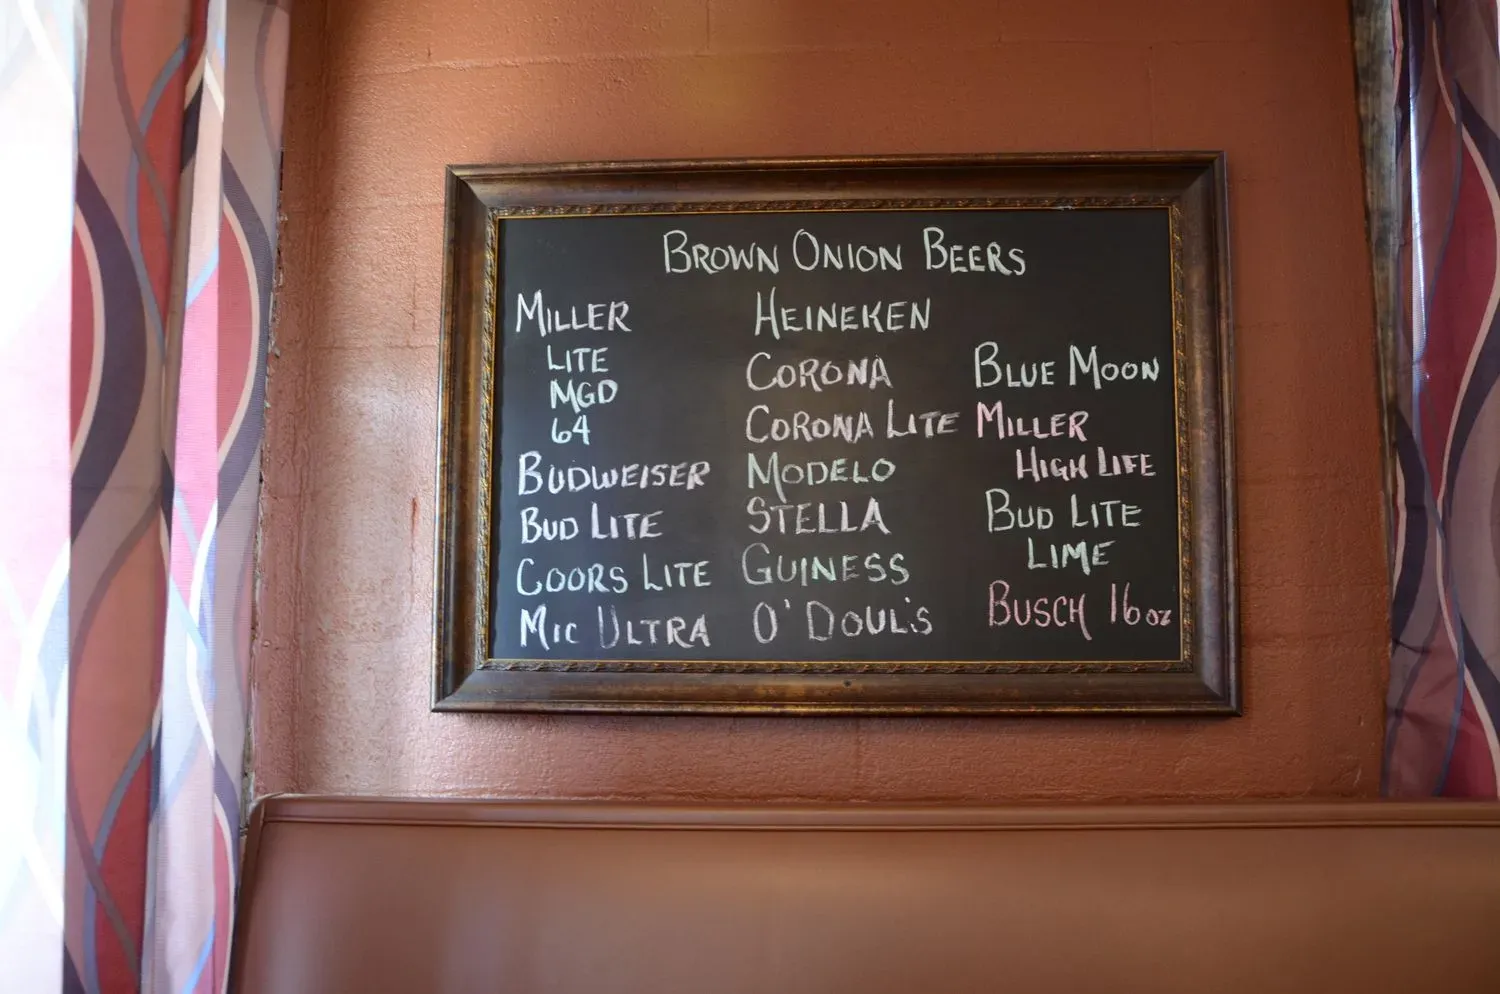 BROWN ONION BEERS
MILLER
LITE
MGD
64
BUDWEISER
BUD LITE
COORS LITE
MIC ULTRA
HEINEKEN
CORONA
CORONA LITE
MODELO
STELLA
GUINESS
O'DOUL'S
BLUE MOON
MILLER
HIGH LIFE
BUD LITE
LIME
BUSCH 16oz